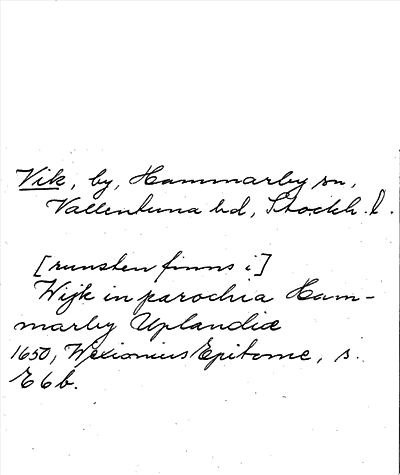 Vik, by, Hammarby sn,
Vallentuna hd, Stockh. l.
[runsten finns i]
Wijk in parochia Ham-
marby Uplandiæ
1650, Wexionius Epitome, s.
E 6 b.